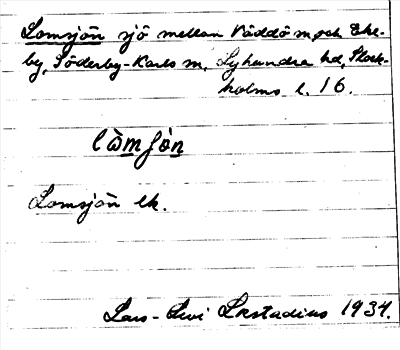 Lomsjön sjö mellan Väddö m. och Eke-
by, Söderby-Karls m, Lyhundra hd, Stock-
holms l. 16.
Lomsjön ek.
Lars-Levi Læstadius 1934.